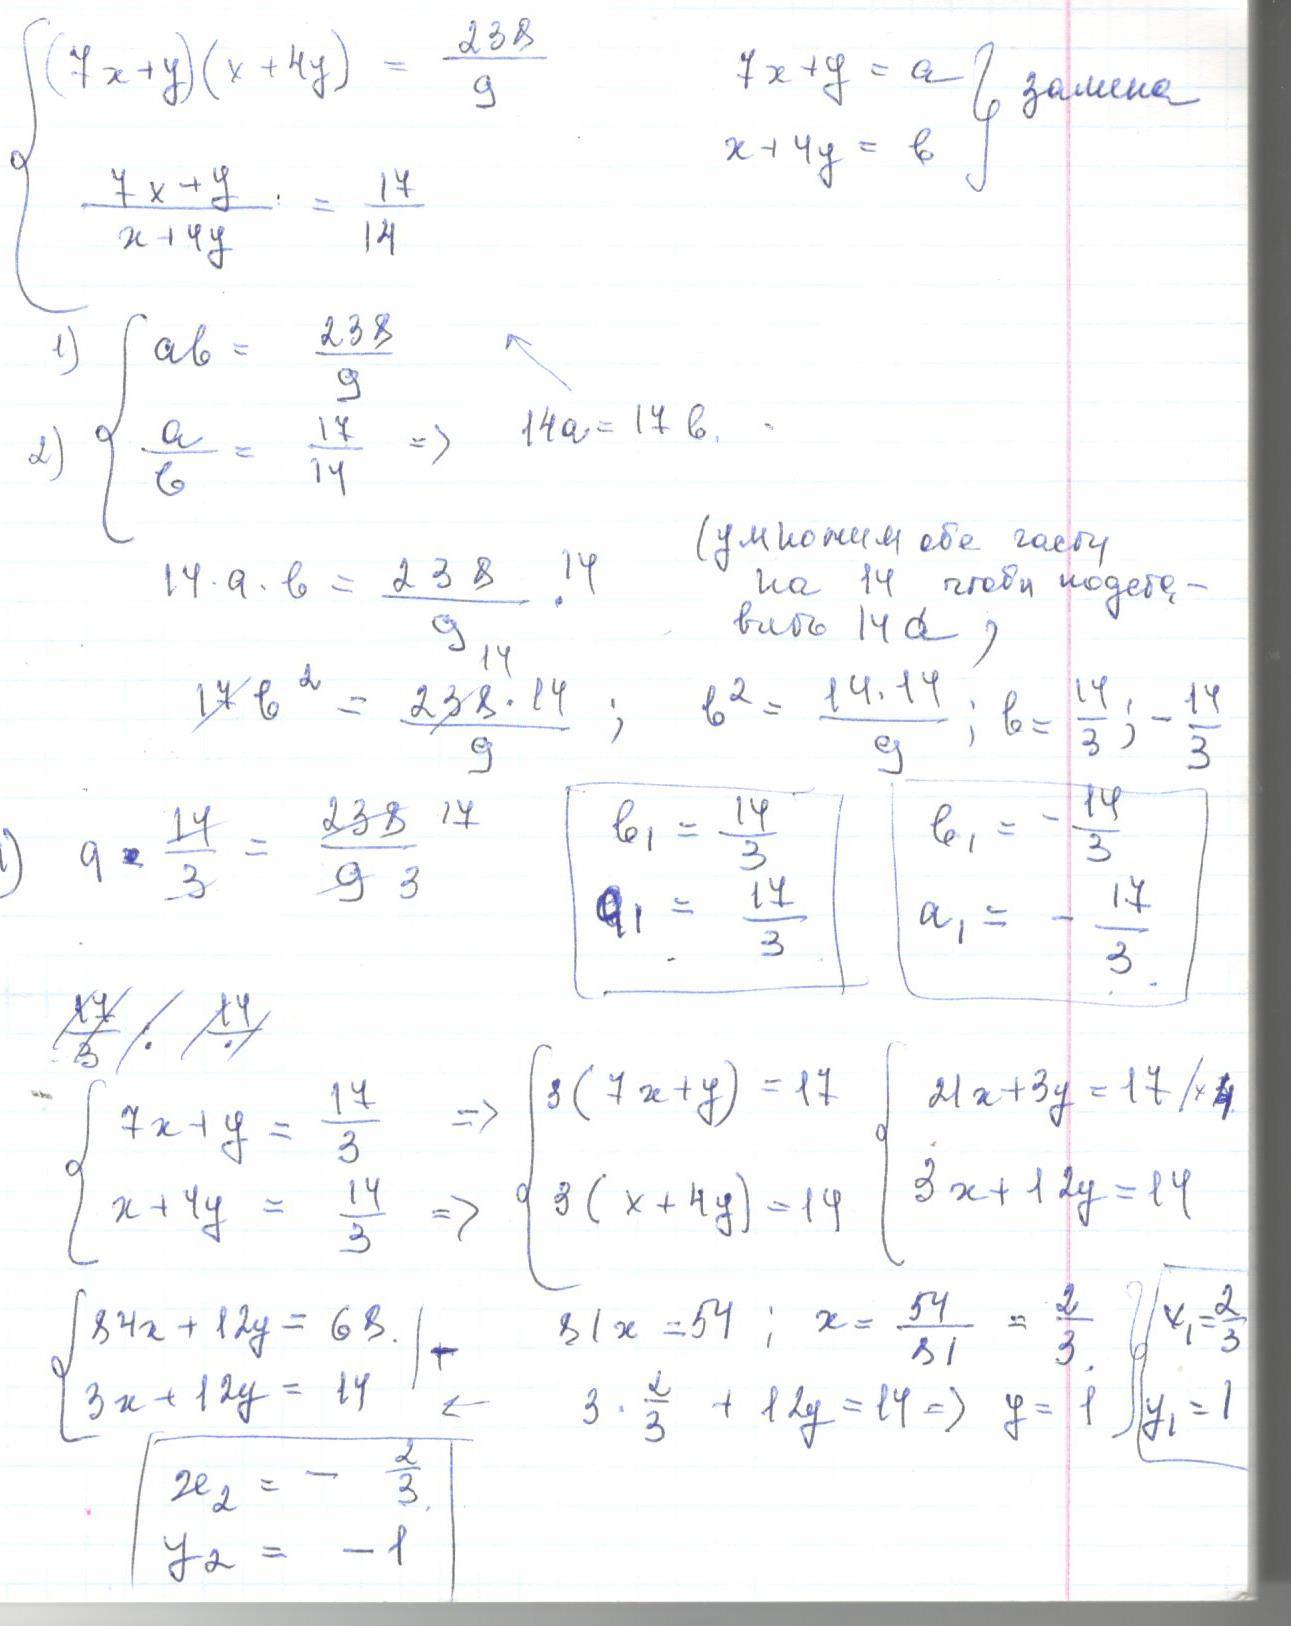 (7x+y)(x+4y) = 238/9
7x+y = a } замена
x+4y = b
(7x+y)/(x+4y) = 17/14
1) ab = 238/9
2) a/b = 17/14 => 14a = 17b.
14·a·b = 238/9 · 14
(умножим обе части
на 14 чтобы подста-
вить 14a)
17b² = 238·14/9 ; b² = 14·14/9 ; b = 14/3 ; -14/3
14
1) a · 14/3 = 238/9 17 3
b₁ = 14/3
a₁ = 17/3
b₁ = -14/3
a₁ = -17/3
17/3 / · 14/·
7x+y = 17/3 => 3(7x+y) = 17
x+4y = 14/3 => 3(x+4y) = 14
21x+3y = 17 /×4
3x+12y = 14
84x+12y = 68. | -
3x+12y = 14 ←
81x = 54 ; x = 54/81 = 2/3.
3·2/3 + 12y = 14 => y = 1
x₁ = 2/3
y₁ = 1
x₂ = - 2/3.
y₂ = -1